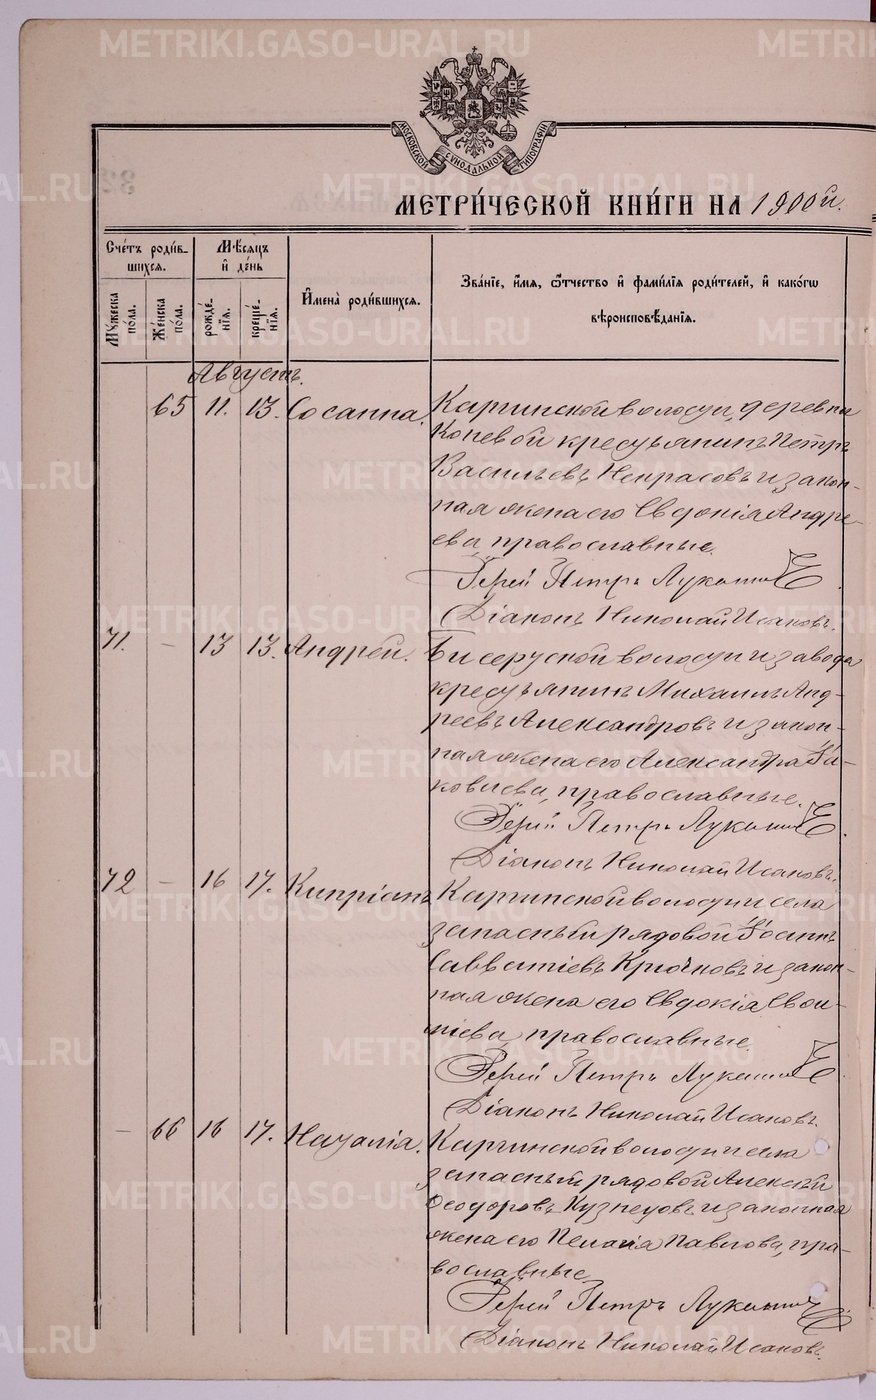 METRIKI.GASO-URAL.RU
МОСКОВСКОЙ СѴНОДАЛЬНОЙ ТИПОГРАФІИ
МЕТРИ́ЧЕСКОЙ КНИ́ГИ НА 1900 й.
Сче́тъ роди́в-
шихся.
Му́жеска
пола.
Же́нска
пола.
Мѣ́сяцъ
и҆ де́нь
рожде́-
нїя.
креще́-
нїя.
И҆мена̀ роди́вшихся.
Зва́нїе, и҆́мя, ѻ҆́тчество и҆ фами́лїя роди́телей, и҆ како́гѡ
вѣроисповѣ́данїя.
Августъ.
65 11. 13. Сосанна. Каргинской волости, деревни
Коневой крестьянинъ Петръ
Васильевъ Некрасовъ и закон-
ная жена его Евдокія Андре-
ева, православные.
Іерей Петръ
Діаконъ Николай Исаковъ.
71. — 13 13. Андрей. Бисертской волости и завода
крестьянинъ Михаилъ Анд-
реевъ Александровъ и закон-
ная жена его Александра Іа-
ковлева, православные.
Іерей Петръ
Діаконъ Николай Исаковъ.
72 — 16 17. Кипріанъ Каргинской волости и села
запасный рядовой Іоаннъ
Савватіевъ Крючковъ и закон-
ная жена его Евдокія
православные.
Іерей Петръ
Діаконъ Николай Исаковъ.
— 66 16 17. Наталія. Каргинской волости и села
запасный рядовой Алексѣй
Ѳеодоровъ Кузнецовъ и законная
жена его Пелагія Павлова, пра-
вославные.
Іерей Петръ
Діаконъ Николай Исаковъ.